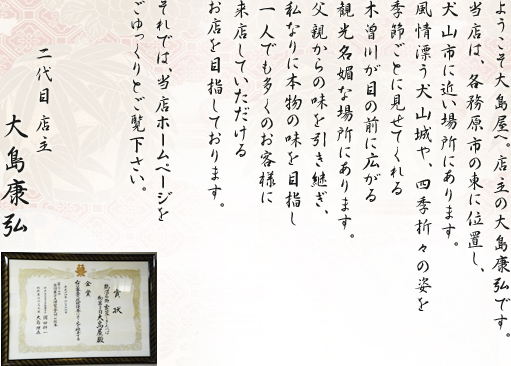 ようこそ大島屋へ。店主の大島康弘です。
当店は、各務原市の東に位置し、
犬山市に近い場所にあります。
風情漂う犬山城や、四季折々の姿を
季節ごとに見せてくれる
木曽川が目の前に広がる
観光名媚な場所にあります。
父親からの味を引き継ぎ、
私なりに本物の味を目指し
一人でも多くのお客様に
来店していただける
お店を目指しております。
それでは、当店ホームページを
ごゆっくりとご覧下さい。
二代目 店主
大島康弘
賞状
大島屋殿
金賞